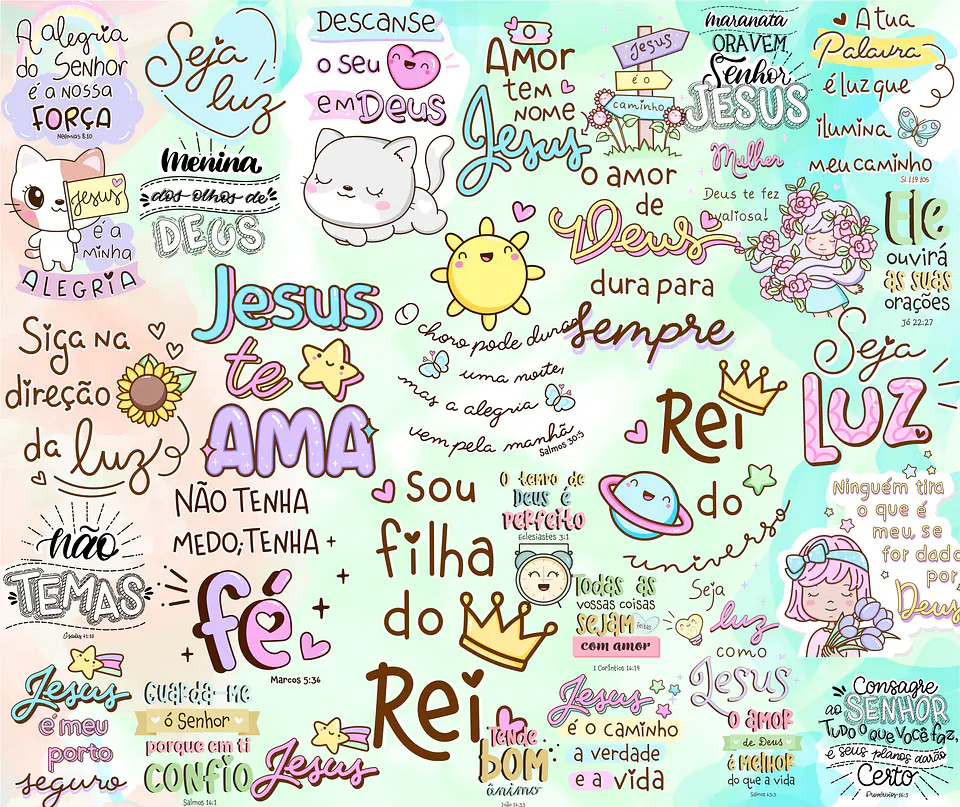 A alegria
do Senhor
é a nossa
FORÇA
Neemias 8:10
Seja
luz
Descanse
o seu
em Deus
O
Amor
tem
nome
Jesus
Jesus
é o
caminho
maranata
ORA VEM,
Senhor
JESUS
A tua
Palavra
é luz que
ilumina
meu caminho
Sl. 119.105
Jesus
é a
minha
ALEGRIA
menina
dos olhos de
DEUS
o amor
de
Deus
dura para
sempre
Mulher
Deus te fez
valiosa!
Ele
ouvirá
as suas
orações
Jó 22:27
Siga na
direção
da luz
Jesus
te
AMA
O choro pode durar
uma noite,
mas a alegria
vem pela manhã
Salmos 30:5
Rei
do
universo
Seja
LUZ
não
TEMAS
Isaías 41:10
NÃO TENHA
MEDO; TENHA
fé
Marcos 5:36
Sou
filha
do
Rei
O tempo de
Deus é
perfeito
Eclesiastes 3:1
Todas as
vossas coisas
sejam
feitas
com amor
1 Coríntios 16:14
Seja
luz
como
Jesus
Ninguém tira
o que é
meu, se
for dado
por
Deus
Jesus
é meu
porto
seguro
Guarda-me
ó Senhor
porque em ti
confio
Salmos 16:1
Jesus
Tende
bom
ânimo
João 16:33
Jesus
é o caminho
a verdade
e a vida
o amor
de Deus
é melhor
do que a vida
Salmos 63:3
Consagre
ao SENHOR
Tudo o que você faz,
e seus planos darão
Certo
Provérbios 16:3